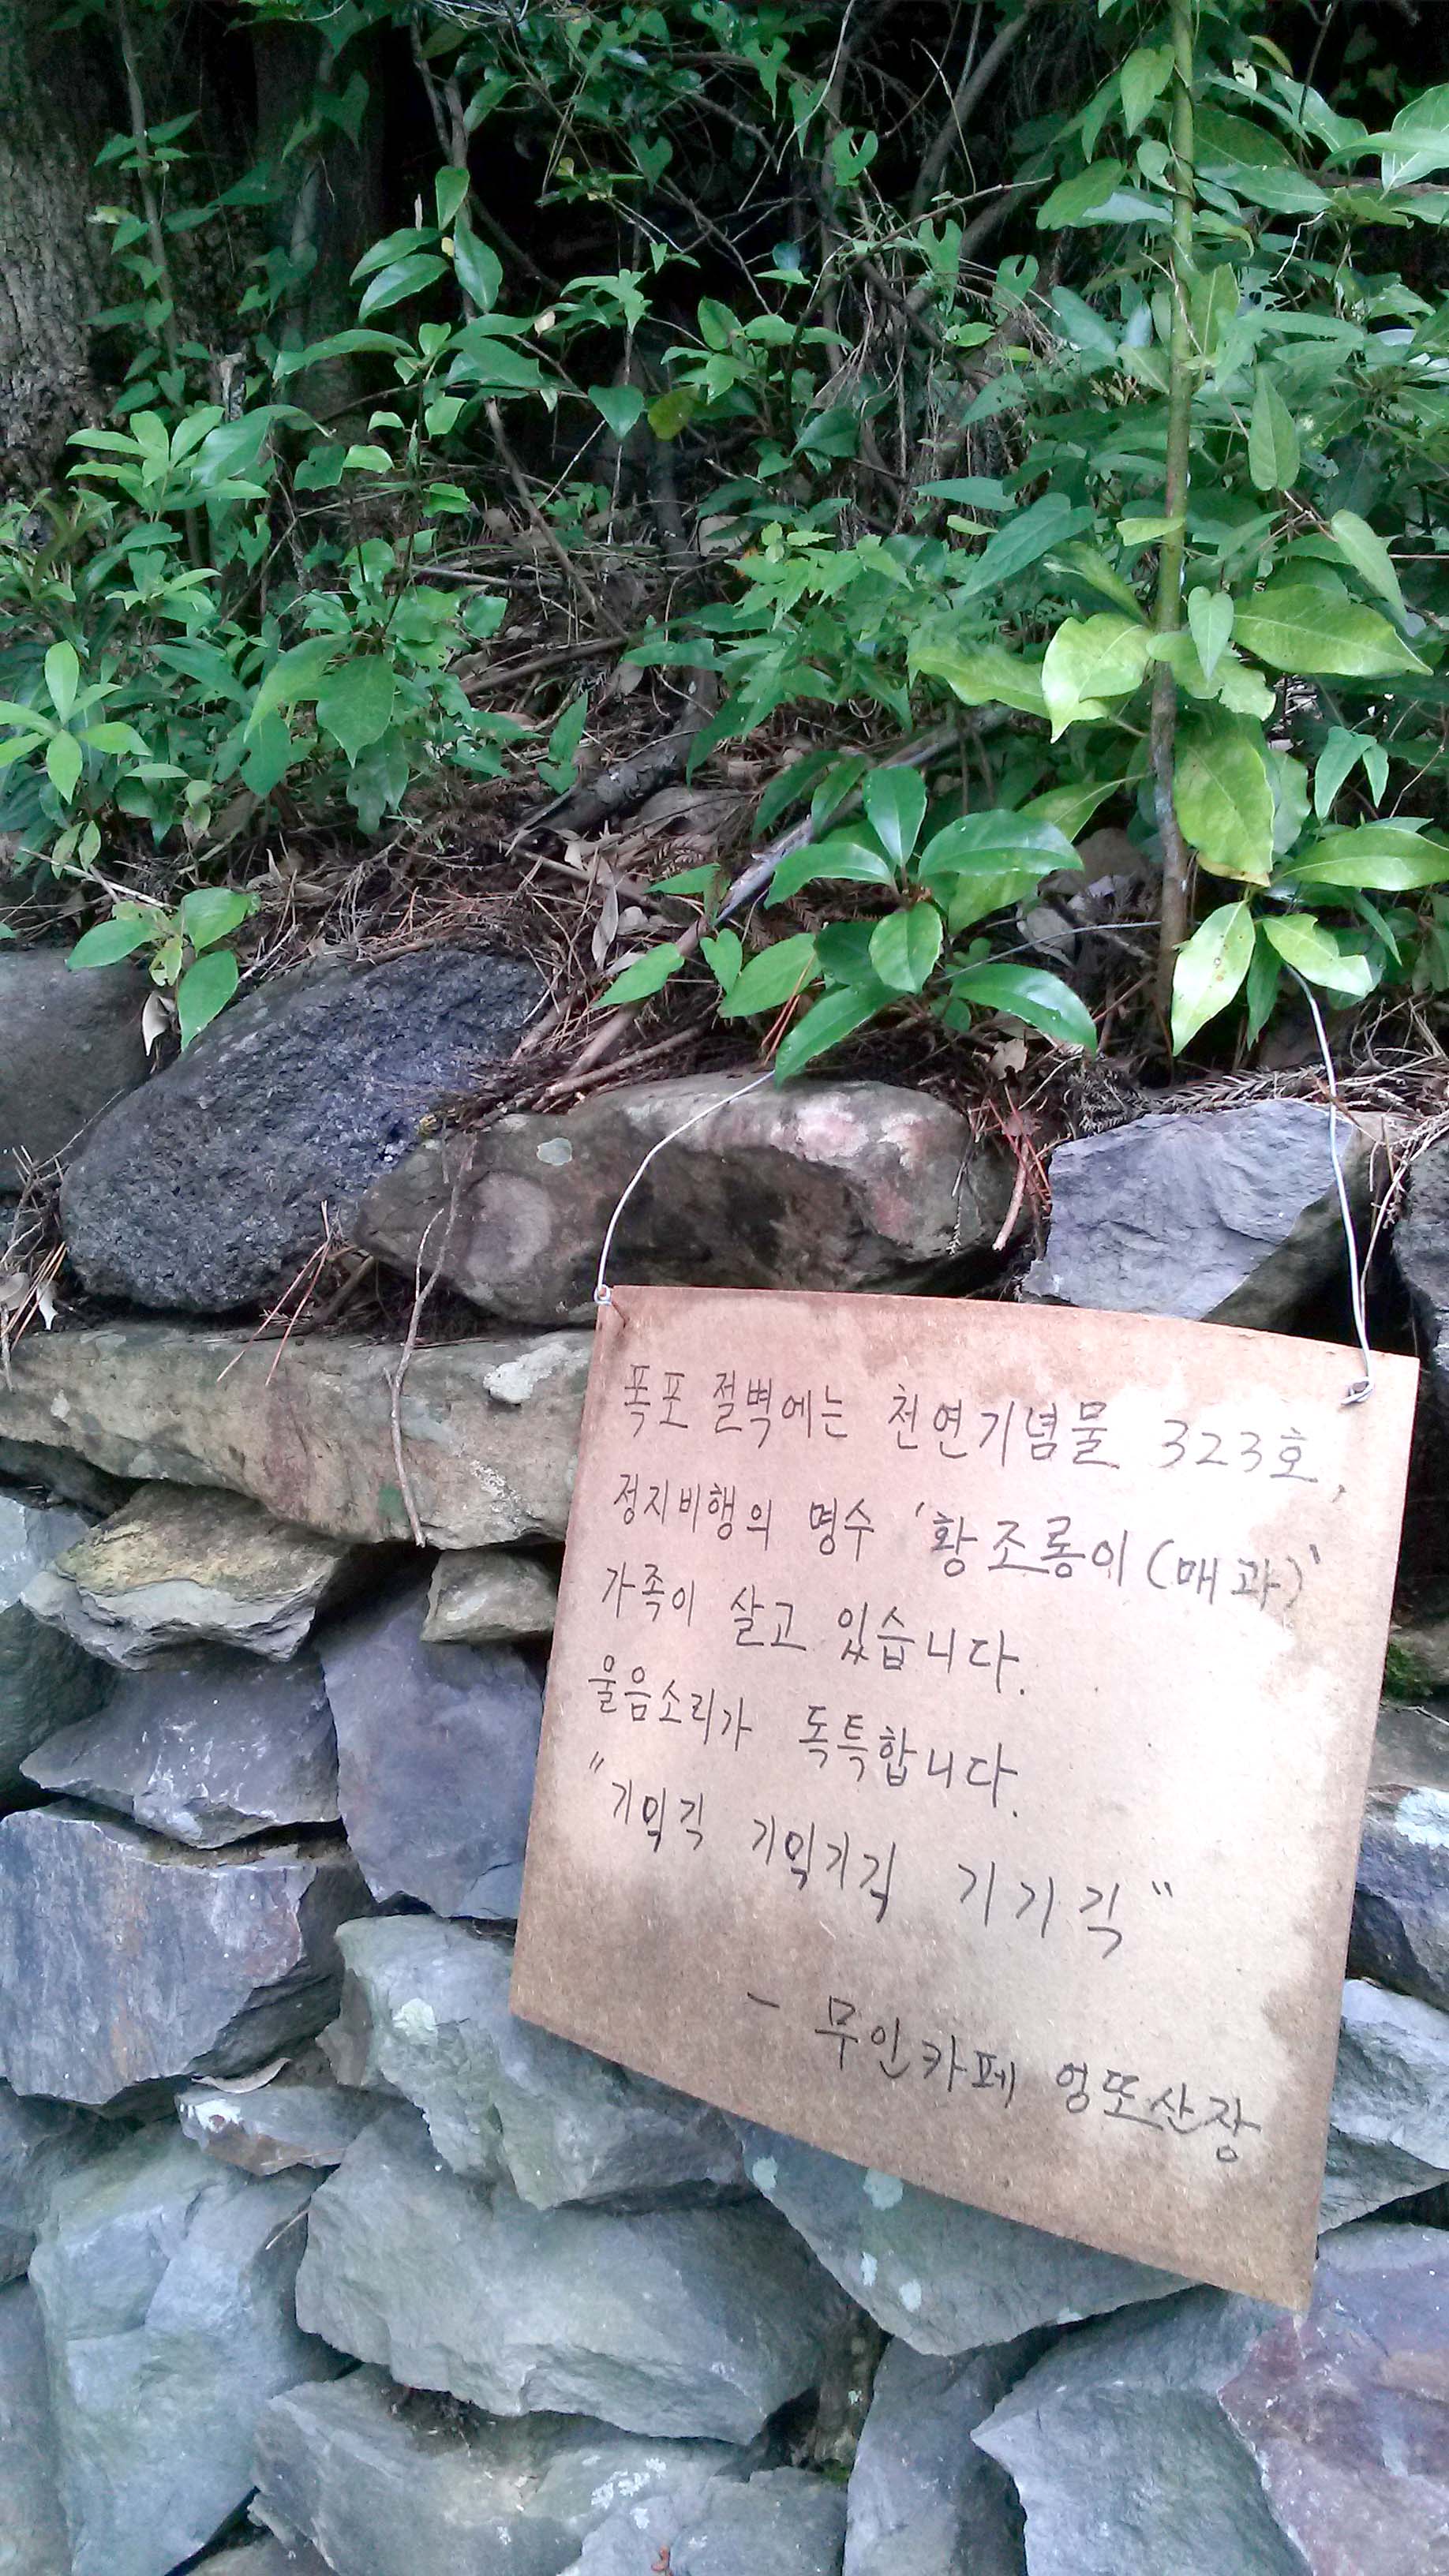 폭포 절벽에는 천연기념물 323호,
정지비행의 명수 '황조롱이(매과)'
가족이 살고 있습니다.
울음소리가 독특합니다.
"기익긱 기익기긱 기기긱"
- 무인카페 엉또산장